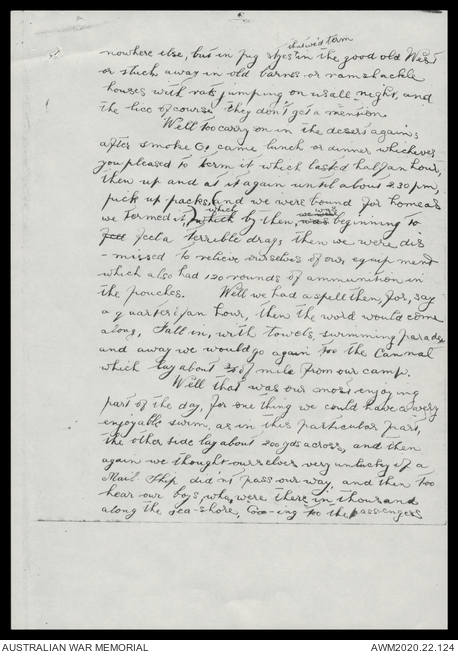 that we'd term
nowhere else, but in pig styes in the good old West
or stuck away in old barns or ramshackle
houses with rats jumping on us all night, and
the lice of course they don't get a mention.
Well too carry on in the desert again,
after smoke O, came lunch or dinner whichever
you pleased to term it which lasted half an hour,
then up and at it again until about 2.30 pm,
pick up packs, and we were bound for home as
we termed it, which by then, was beginning to
feel a terrible drag, then we were dis
- missed to relieve ourselves of our equipment
which also had 120 rounds of ammunition in
the pouches. Well we had a spell then, for, say
a quarter of an hour, then the word would come
along, Fall in, with towels, swimming parade
and away we would go again too the Cannal
which lay about of mile from our camp.
Well that was our most enjoying
part of the day, for one thing we could have a very
enjoyable swim, as in this particular part,
the other side lay about 200 yds across, and then
again we thought ourselves very unlucky if a
Mail Ship did nt pass our way, and then too
hear our boys who, were there in thousand
along the sea-shore, Coo-ing too the passengers
AUSTRALIAN WAR MEMORIAL
AWM2020.22.124